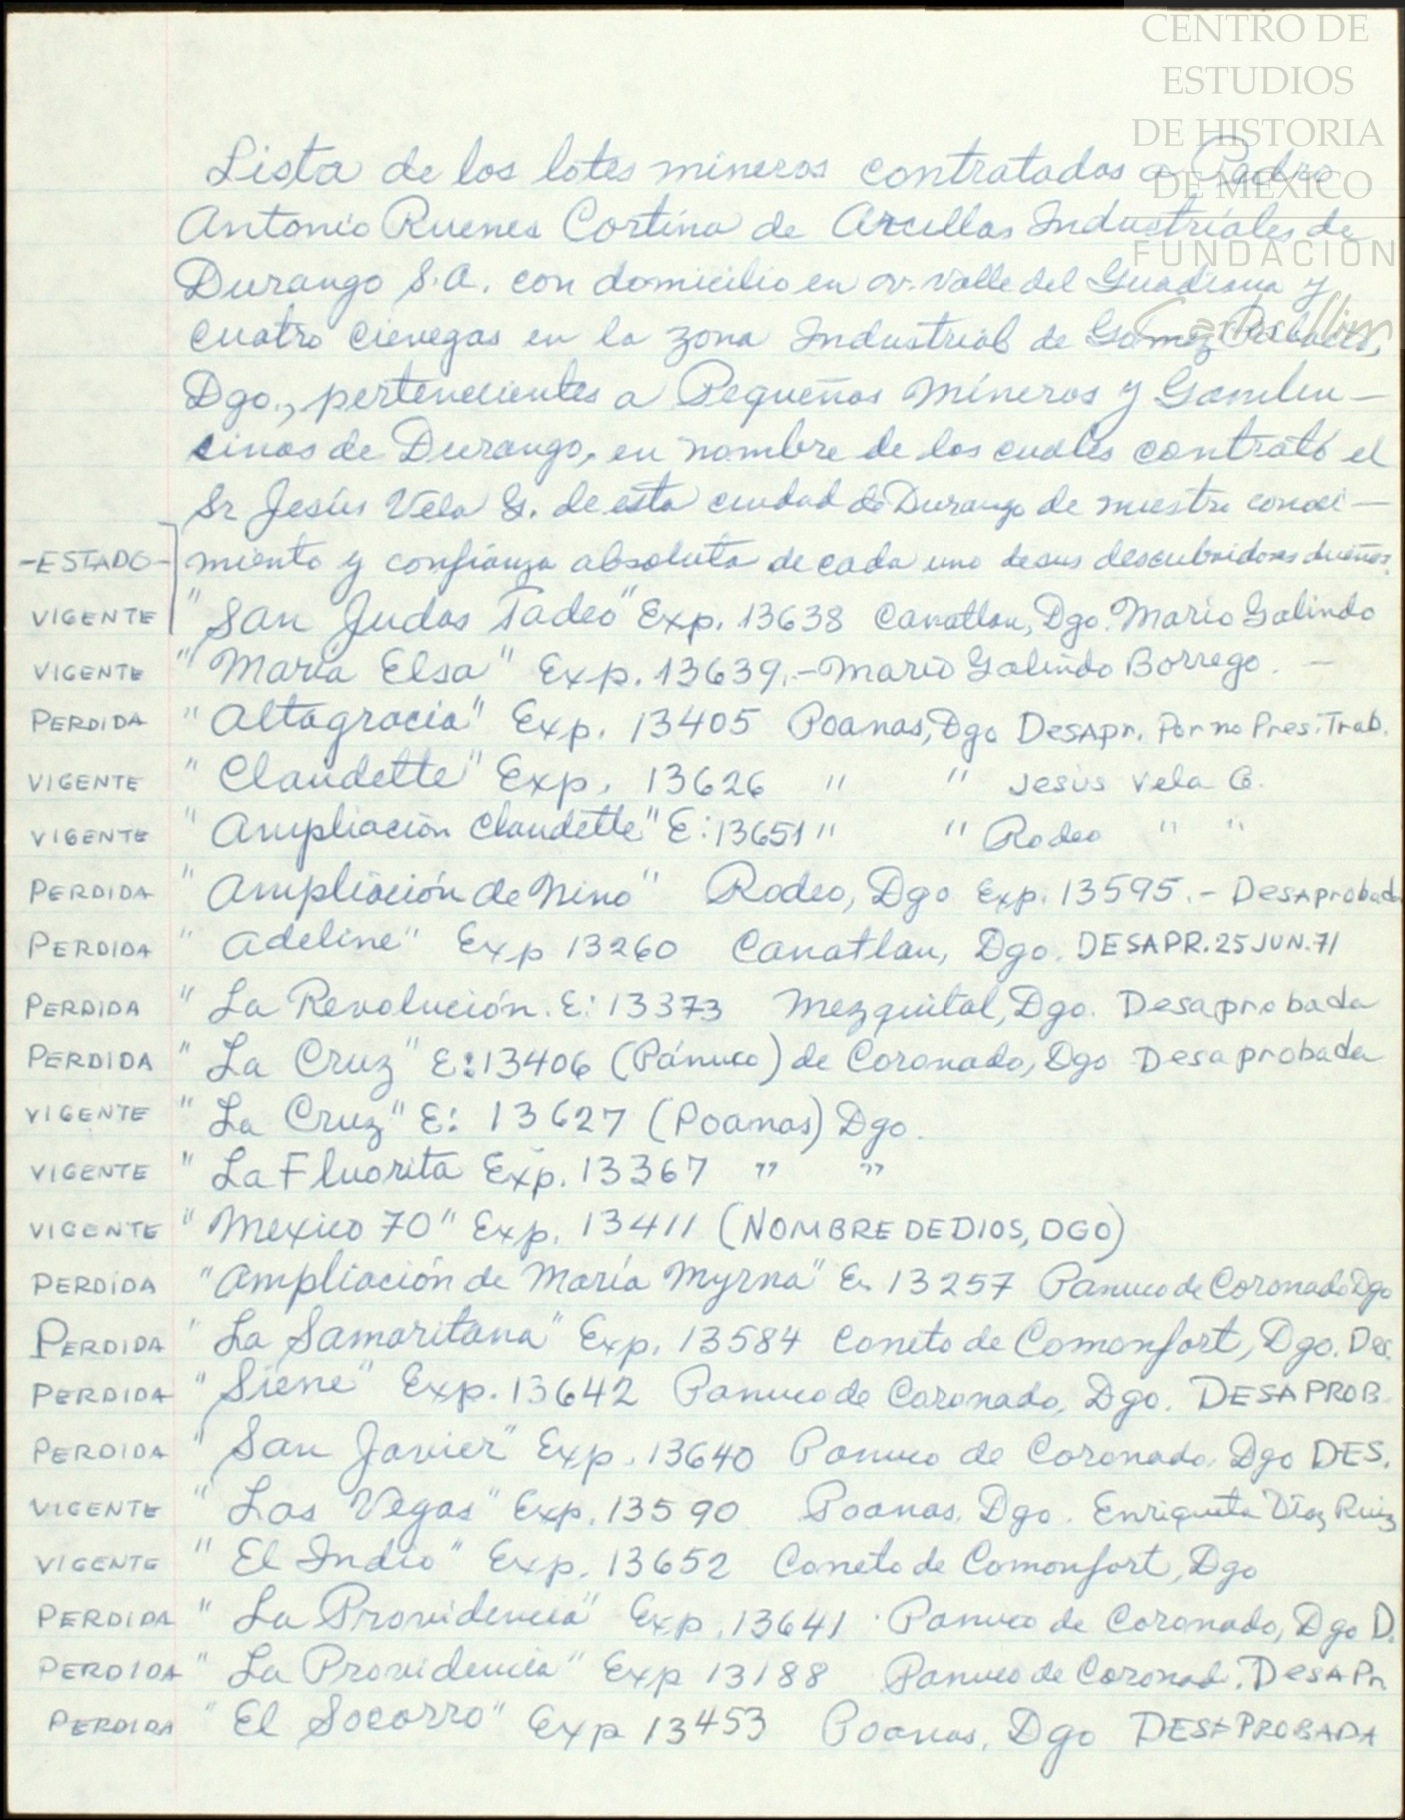 CENTRO DE
ESTUDIOS
DE HISTORIA
DE MÉXICO
FUNDACIÓN
Carlos Slim
Lista de los lotes mineros contratados a Pedro
Antonio Ruenes Cortina de Arcillas Industriales de
Durango S.A. con domicilio en av. valle del Guadiana y
cuatro cienegas en la zona Industrial de Gomez Palacio,
Dgo., pertenecientes a Pequeños Mineros y Gambu-
sinos de Durango, en nombre de los cuales contrató el
Sr Jesús Vela G. de esta ciudad de Durango de nuestro conoci-
-ESTADO- miento y confianza absoluta de cada uno de sus descubridores dueños.
VIGENTE "San Judas Tadeo" Exp. 13638 Canatlan, Dgo. Mario Galindo
VIGENTE "Maria Elsa" Exp. 13639.- Mario Galindo Borrego. -
PERDIDA "Altagracia" Exp. 13405 Poanas, Dgo Desapr. Por no Pres. Trab.
VIGENTE "Claudette" Exp. 13626 " " Jesús Vela G.
VIGENTE "Ampliación Claudette" E: 13651 " " Rodeo " "
PERDIDA "Ampliación de Nino" Rodeo, Dgo Exp. 13595.- Desaprobada
PERDIDA "Adeline" Exp 13260 Canatlan, Dgo. DESAPR. 25 JUN. 71
PERDIDA "La Revolución. E: 13373 Mezquital, Dgo. Desaprobada
PERDIDA "La Cruz" E: 13406 (Pánuco) de Coronado, Dgo Desaprobada
VIGENTE "La Cruz" E: 13627 (Poanas) Dgo.
VIGENTE "La Fluorita Exp. 13367 " "
VIGENTE "Mexico 70" Exp. 13411 (NOMBRE DE DIOS, DGO)
PERDIDA "Ampliación de María Myrna" E. 13257 Panuco de Coronado Dgo
PERDIDA "La Samaritana" Exp. 13584 Coneto de Comonfort, Dgo. Des.
PERDIDA "Siene" Exp. 13642 Panuco de Coronado, Dgo. DESAPROB.
PERDIDA "San Javier" Exp. 13640 Panuco de Coronado, Dgo DES.
VIGENTE "Las Vegas" Exp. 13590 Poanas, Dgo. Enriqueta Díaz Ruiz
VIGENTE "El Indio" Exp. 13652 Coneto de Comonfort, Dgo
PERDIDA "La Providencia" Exp. 13641 Panuco de Coronado, Dgo D.
PERDIDA "La Providencia" Exp 13188 Panuco de Coronad. Desapr
PERDIDA "El Socorro" Exp 13453 Poanas, Dgo DESAPROBADA